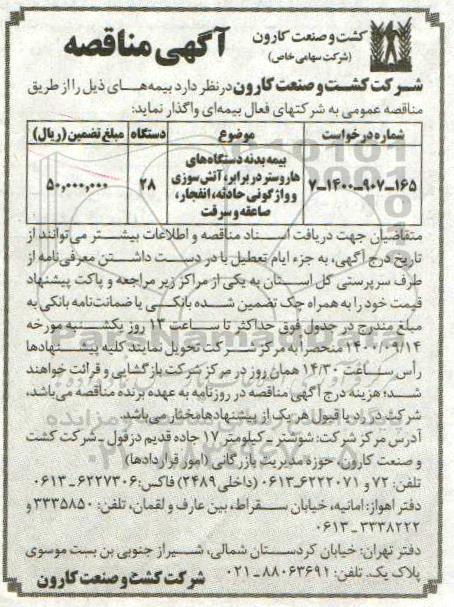 کشت و صنعت کارون
(شرکت سهامی خاص)
آگهی مناقصه
شرکت کشت و صنعت کارون در نظر دارد بیمه‌های ذیل را از طریق
مناقصه عمومی به شرکتهای فعال بیمه‌ای واگذار نماید:
شماره درخواست موضوع دستگاه مبلغ تضمین (ریال)
۷-۱۴۰۰-۹۰۷-۱۶۵ بیمه بدنه دستگاه‌های هاروستر در برابر، آتش سوزی و واژگونی حادثه، انفجار، صاعقه و سرقت ۲۸ ۵۰,۰۰۰,۰۰۰
متقاضیان جهت دریافت اسناد مناقصه و اطلاعات بیشتر می‌توانند از
تاریخ درج آگهی، به جزء ایام تعطیل با در دست داشتن معرفی‌نامه از
طرف سرپرستی کل استان به یکی از مراکز زیر مراجعه و پاکت پیشنهاد
قیمت خود را به همراه چک تضمین شده بانکی یا ضمانت‌نامه بانکی به
مبلغ مندرج در جدول فوق حداکثر تا ساعت ۱۲ روز یکشنبه مورخه
۱۴۰۰/۰۹/۱۴ منحصراً به مرکز شرکت تحویل نمایند کلیه پیشنهادها
رأس ساعت ۱۴/۳۰ همان روز در مرکز شرکت بازگشایی و قرائت خواهند
شد؛ هزینه درج آگهی مناقصه در روزنامه به عهده برنده مناقصه می‌باشد،
شرکت در رد یا قبول هر یک از پیشنهادها مختار می‌باشد.
آدرس مرکز شرکت: شوشتر - کیلومتر ۱۷ جاده قدیم دزفول - شرکت کشت
و صنعت کارون، حوزه مدیریت بازرگانی (امور قراردادها)
تلفن: ۷۲ و ۶۲۲۲۰۷۱-۰۶۱۳ (داخلی ۲۴۸۹) فاکس: ۶۲۲۷۳۰۶-۰۶۱۳
دفتر اهواز: امانیه، خیابان سقراط، بین عارف و لقمان، تلفن: ۳۳۳۵۸۵۰ و
۳۳۳۸۲۲۲-۰۶۱۳
دفتر تهران: خیابان کردستان شمالی، شیراز جنوبی بن بست موسوی
پلاک یک. تلفن: ۸۸۰۶۳۶۹۱-۰۲۱
شرکت کشت و صنعت کارون